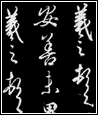 羲之頓
安善未果
羲之頓